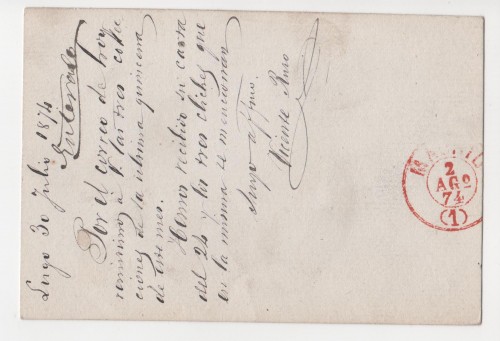 Lugo 30 Julio 1874
Enterado
Por el correo de hoy
remitimos á V. las tres coti-
ciones de la ultima quincena
de este mes.
Hemos recibido su carta
del 24 y los tres clichés que
en la misma se mencionan
Suyo affmo.
Vicente
MADRID
2
AGO
74
(1)